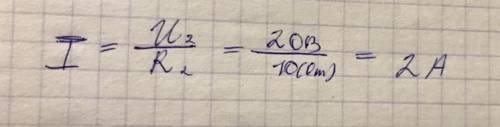 I = U₂/R₂ = 20В/10(Om) = 2 A